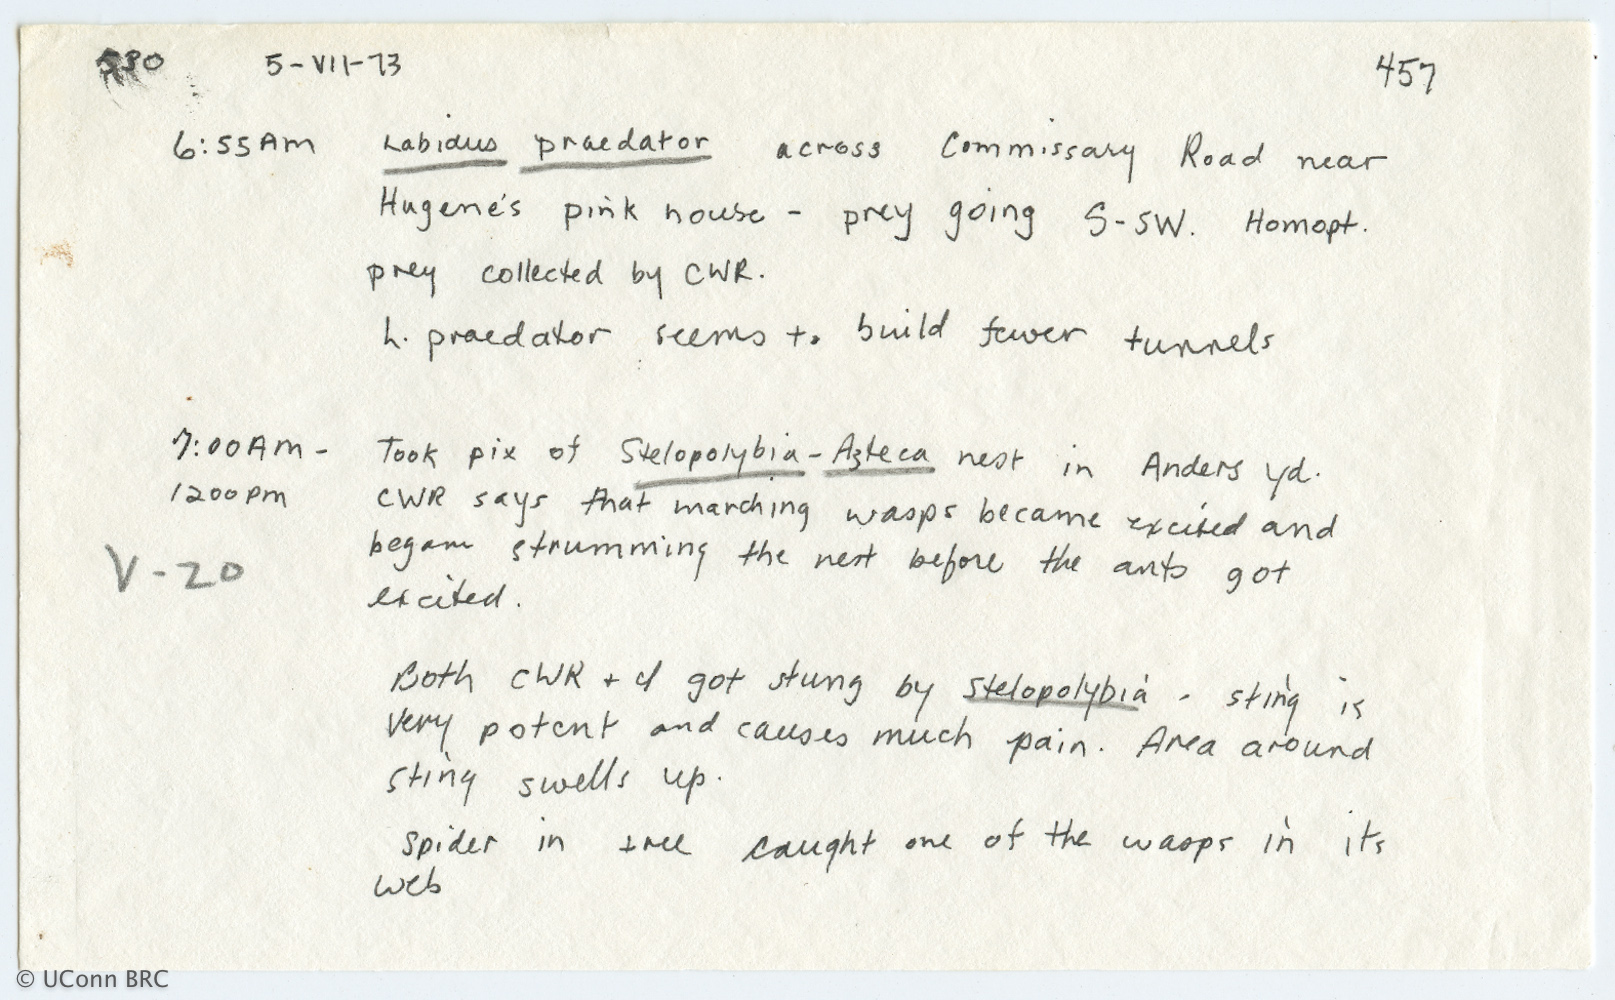 5-VII-73
457
6:55 Am Labidus praedator across Commissary Road near
Hugene's pink house - prey going S-SW. Homopt.
prey collected by CWR.
L. praedator seems to build fewer tunnels
7:00 Am - Took pix of Stelopolybia - Azteca nest in Anders yd.
1200 pm CWR says that marching wasps became excited and
began strumming the nest before the ants got
V-20
excited.
Both CWR + I got stung by Stelopolybia - sting is
very potent and causes much pain. Area around
sting swells up.
Spider in tree caught one of the wasps in its
web
© UConn BRC